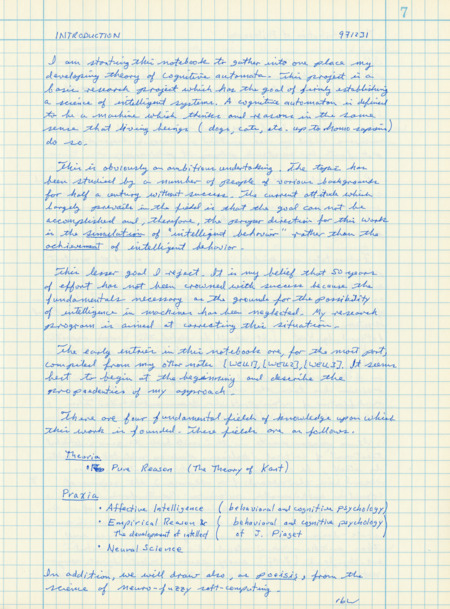 7
INTRODUCTION 971231
I am starting this notebook to gather into one place my
developing theory of cognitive automata. This project is a
basic research project which has the goal of firmly establishing
a science of intelligent systems. A cognitive automaton is defined
to be a machine which thinks and reasons in the same
sense that living beings (dogs, cats, etc. up to homo sapiens)
do so.
This is obviously an ambitious undertaking. The topic has
been studied by a number of people of various backgrounds
for half a century without success. The current attitude which
largely prevails in the field is that the goal can not be
accomplished and, therefore, the proper direction for this work
is the simulation of "intelligent behavior" rather than the
achievement of intelligent behavior.
This lesser goal I reject. It is my belief that 50 years
of effort has not been crowned with success because the
fundamentals necessary as the grounds for the possibility
of intelligence in machines has been neglected. My research
program is aimed at correcting this situation.
The early entries in this notebook are, for the most part,
compiled from my other notes [WELL1], [WELL2], [WELL3]. It seems
best to begin at the beginning and describe the
propaedeutics of my approach.
There are four fundamental fields of knowledge upon which
this work is founded. These fields are as follows.
Theoria
• Pure Reason (The Theory of Kant)
Praxia
• Affective Intelligence (behavioral and cognitive psychology)
• Empirical Reason & ( behavioral and cognitive psychology )
the development of intellect ( of J. Piaget )
• Neural Science
In addition, we will draw also, as poiesis, from the
science of neuro-fuzzy soft-computing.
rbw